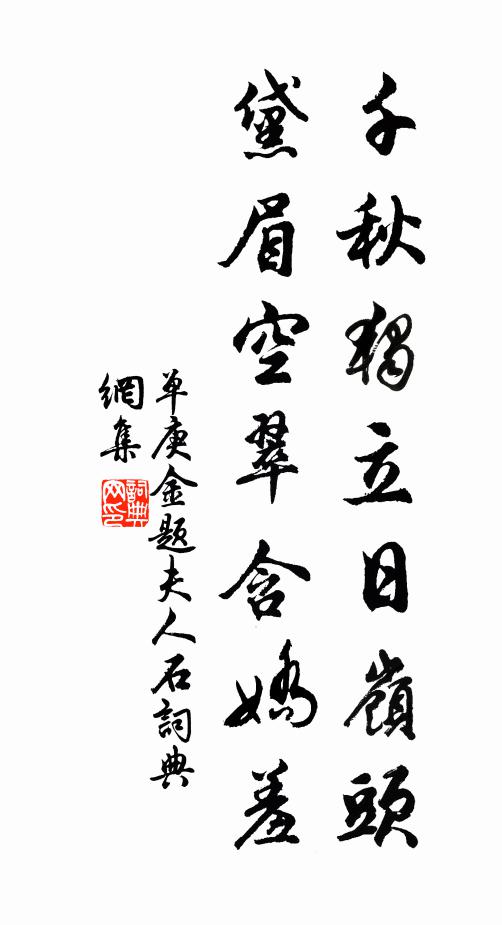 千秋獨立日嶺頭
黛眉空翠含嬌羞
單庚金題夫人石詞典
網集
詞典
网印